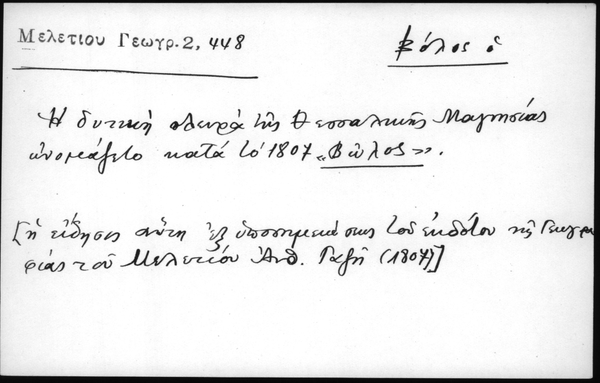 Μελετίου Γεωγρ. 2, 448
Βόλος ὁ
Ἡ δυτικὴ πλευρὰ τῆς Θεσσαλικῆς Μαγνησίας
ὠνομάζετο κατά τό 1807 «Βῶλος».
[ἡ εἴδησις αὕτη ἐξ ὑποσημειώσεως τοῦ ἐκδότου τῆς Γεωγρα
φίας τοῦ Μελετίου Ἀνθ. Γαζῆ (1807)]